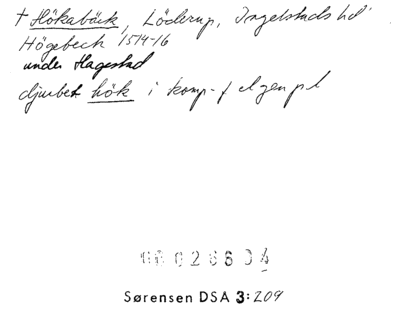 † Hökabäck, Löderup, Ingelstads hd
Högebech 1514-16
under Hagestad
djurbet hök i komp-f el gen pl
00 0 2 8 6 0 4
Sørensen DSA 3: 209